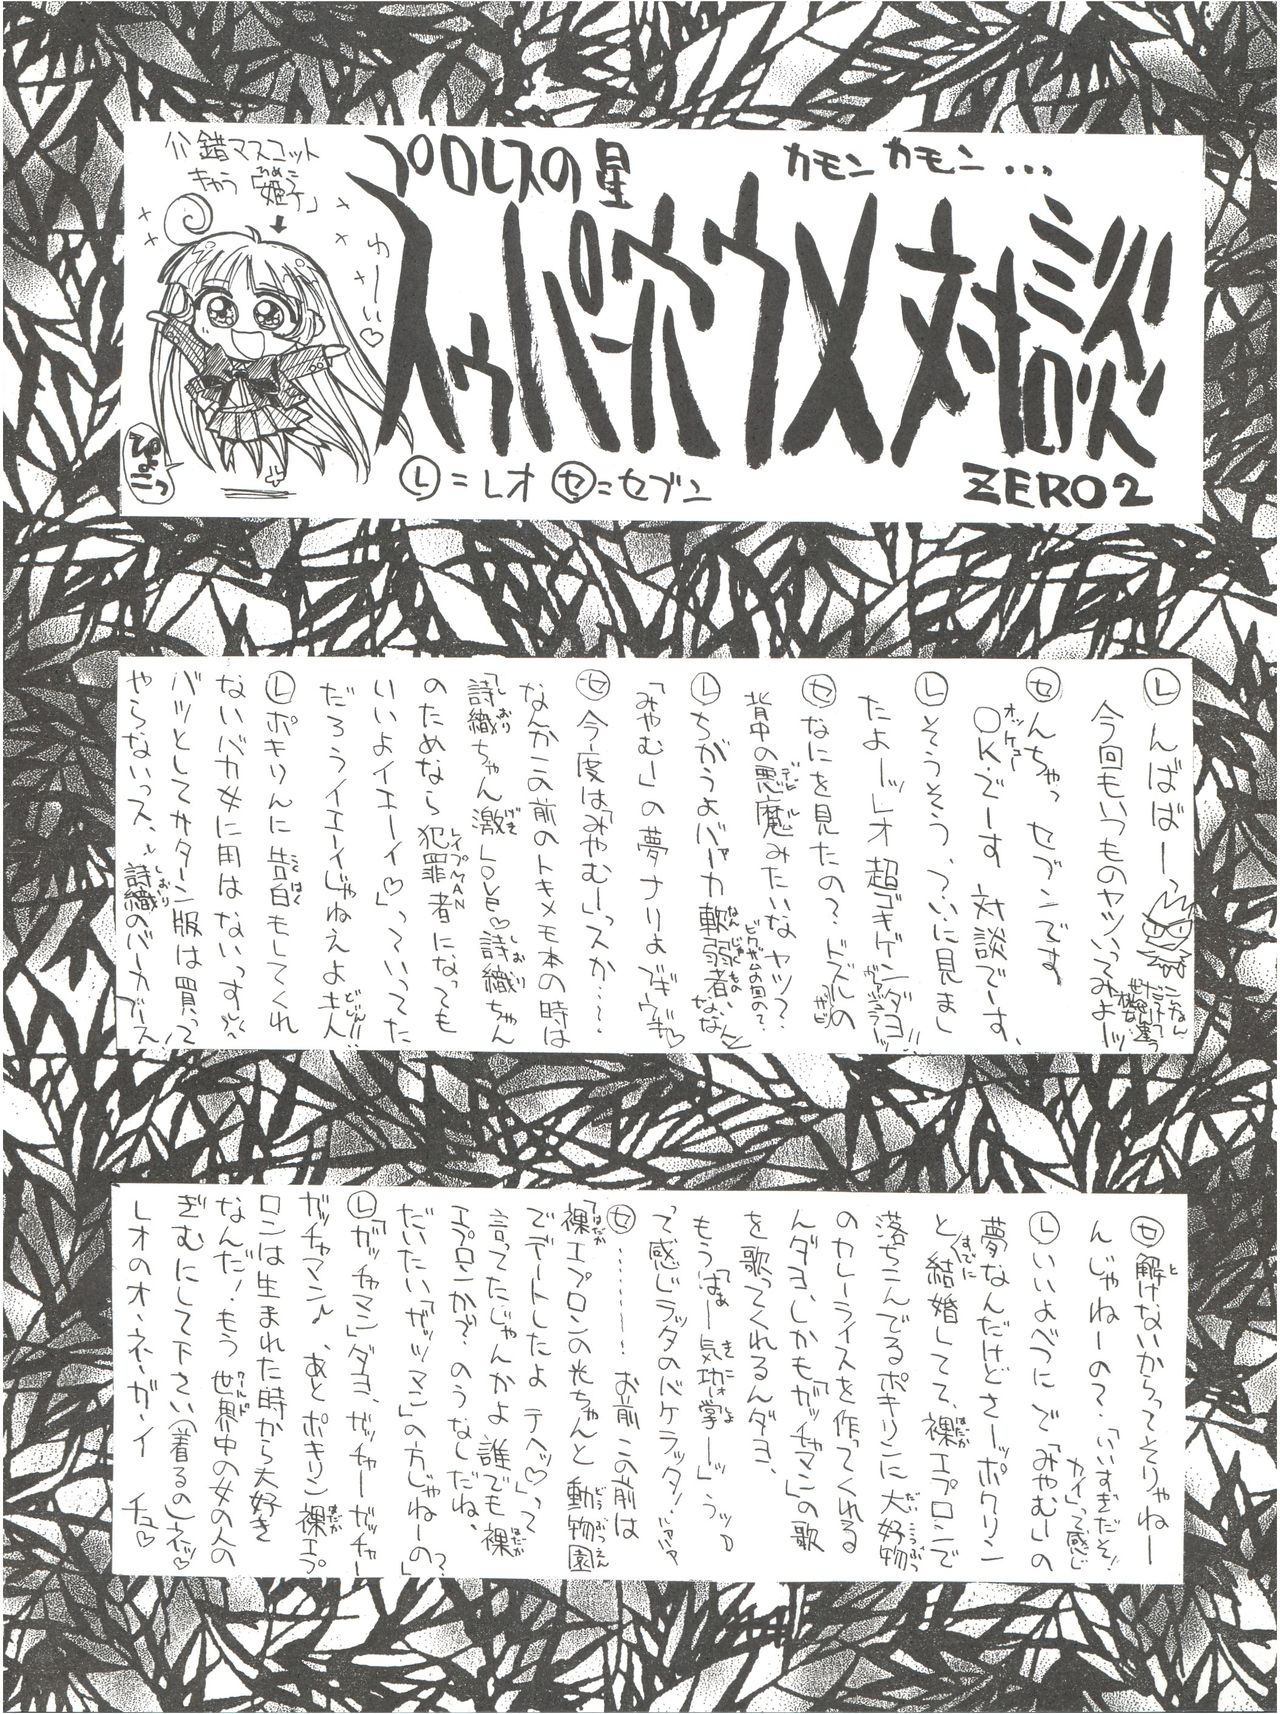 プロレスの星
カモンカモン…
スゥパーウメ対談
ZERO2
Ⓛ=レオ ㋝=セブン
介錯マスコット
キャラ「姫子」
わーい♡
ぴょこっ
Ⓛんばばーっ
今回もいつものヤツいってみよーッ
㋝んちゃっ セブンです
OK.でーす 対談でーす、
Ⓛそうそう、ついに見まし
たよーッレオ超ゴキゲンダヨ!!
㋝なにを見たの?ドズルの
背中の悪魔みたいなヤツ?
ビグザムの回の?
Ⓛちがうよバァーカ軟弱者、
「みやむー」の夢ナリよ
㋝今度は「みやむー」っスか……
なんかこの前のトキメモ本の時は
「詩織ちゃん激LOVE♡詩織ちゃん
のためなら犯罪者になっても
いいよイエーイ♡」っていってた
だろうイエーイじゃねえよ土人
Ⓛポキりんに告白もしてくれ
ないバカ女に用はないっす
バツとしてサターン版は買って
やらないっス、詩織のバーカブース
㋝解けないからってそりゃねー
んじゃねーの?「いいすぎだぞ!
カイ」って感じ
Ⓛいいよべつにで「みやむー」の
夢なんだけどさーッポクリン
と結婚してて、裸エプロンで
落ちこんでるポキリンに大好物
のカレーライスを作ってくれる
んダヨ、しかも「ガッチャマン」の歌
を歌ってくれるんダヨ、
もう「はぁー気功学ー」ッ
って感じラッタのバケラッタ!
㋝……………!お前この前は
「裸エプロンの光ちゃんと動物園
でデートしたよ テヘッ♡」って
言ってたじゃんかよ 誰でも裸
エプロンか?のうなしだね、
だいたい「ガッツマン」の方じゃねーの?
Ⓛ「ガッチャマン」ダヨ、ガッチャーガッチャー
ガッチャマン♪、あとポキリン裸エプ
ロンは生まれた時から大好き
なんだ!もう世界中の女の人の
ぎむにして下さい(着るの)ネッ♡
レオのオ・ネ・ガ・イ チュ♡